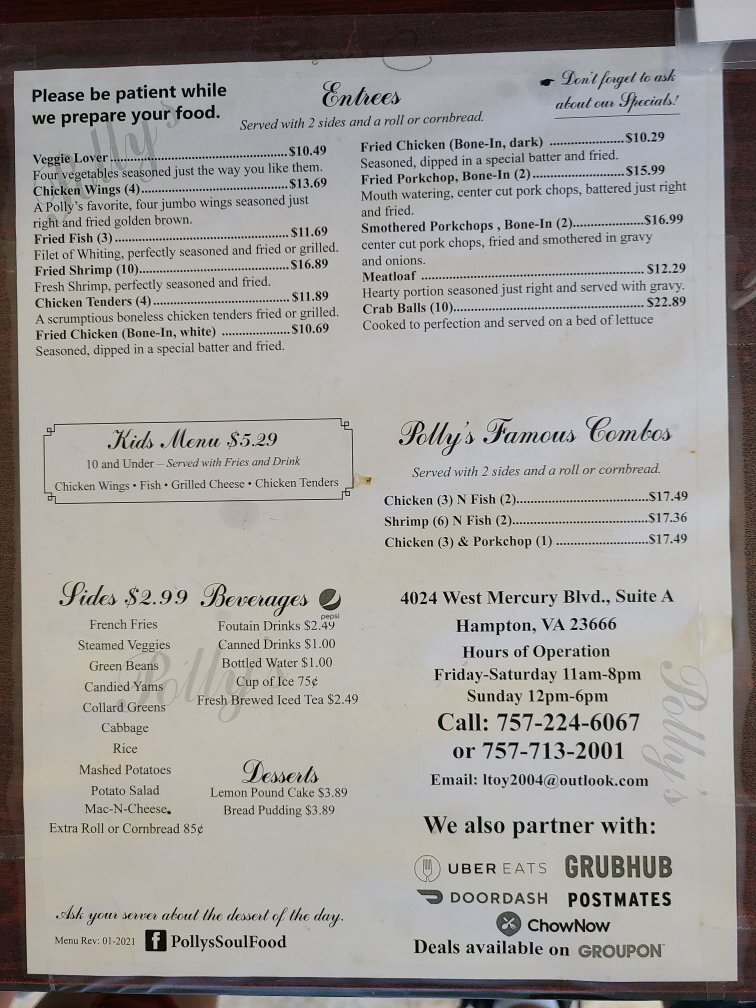 Please be patient while
we prepare your food.
Entrees
Served with 2 sides and a roll or cornbread.
Don't forget to ask
about our Specials!
Veggie Lover ........ $10.49
Four vegetables seasoned just the way you like them.
Chicken Wings (4) ........ $13.69
A Polly's favorite, four jumbo wings seasoned just
right and fried golden brown.
Fried Fish (3) ........ $11.69
Filet of Whiting, perfectly seasoned and fried or grilled.
Fried Shrimp (10) ........ $16.89
Fresh Shrimp, perfectly seasoned and fried.
Chicken Tenders (4) ........ $11.89
A scrumptious boneless chicken tenders fried or grilled.
Fried Chicken (Bone-In, white) ........ $10.69
Seasoned, dipped in a special batter and fried.
Fried Chicken (Bone-In, dark) ........ $10.29
Seasoned, dipped in a special batter and fried.
Fried Porkchop, Bone-In (2) ........ $15.99
Mouth watering, center cut pork chops, battered just right
and fried.
Smothered Porkchops , Bone-In (2) ........ $16.99
center cut pork chops, fried and smothered in gravy
and onions.
Meatloaf ........ $12.29
Hearty portion seasoned just right and served with gravy.
Crab Balls (10) ........ $22.89
Cooked to perfection and served on a bed of lettuce
Kids Menu $5.29
10 and Under – Served with Fries and Drink
Chicken Wings • Fish • Grilled Cheese • Chicken Tenders
Polly's Famous Combos
Served with 2 sides and a roll or cornbread.
Chicken (3) N Fish (2) ........ $17.49
Shrimp (6) N Fish (2) ........ $17.36
Chicken (3) & Porkchop (1) ........ $17.49
Sides $2.99
French Fries
Steamed Veggies
Green Beans
Candied Yams
Collard Greens
Cabbage
Rice
Mashed Potatoes
Potato Salad
Mac-N-Cheese
Extra Roll or Cornbread 85¢
Beverages
pepsi
Foutain Drinks $2.49
Canned Drinks $1.00
Bottled Water $1.00
Cup of Ice 75¢
Fresh Brewed Iced Tea $2.49
Desserts
Lemon Pound Cake $3.89
Bread Pudding $3.89
4024 West Mercury Blvd., Suite A
Hampton, VA 23666
Hours of Operation
Friday-Saturday 11am-8pm
Sunday 12pm-6pm
Call: 757-224-6067
or 757-713-2001
Email: ltoy2004@outlook.com
We also partner with:
UBER EATS GRUBHUB
DOORDASH POSTMATES
ChowNow
Deals available on GROUPON
Ask your server about the dessert of the day.
Menu Rev: 01-2021 f PollysSoulFood
Polly's
Polly's
Polly's